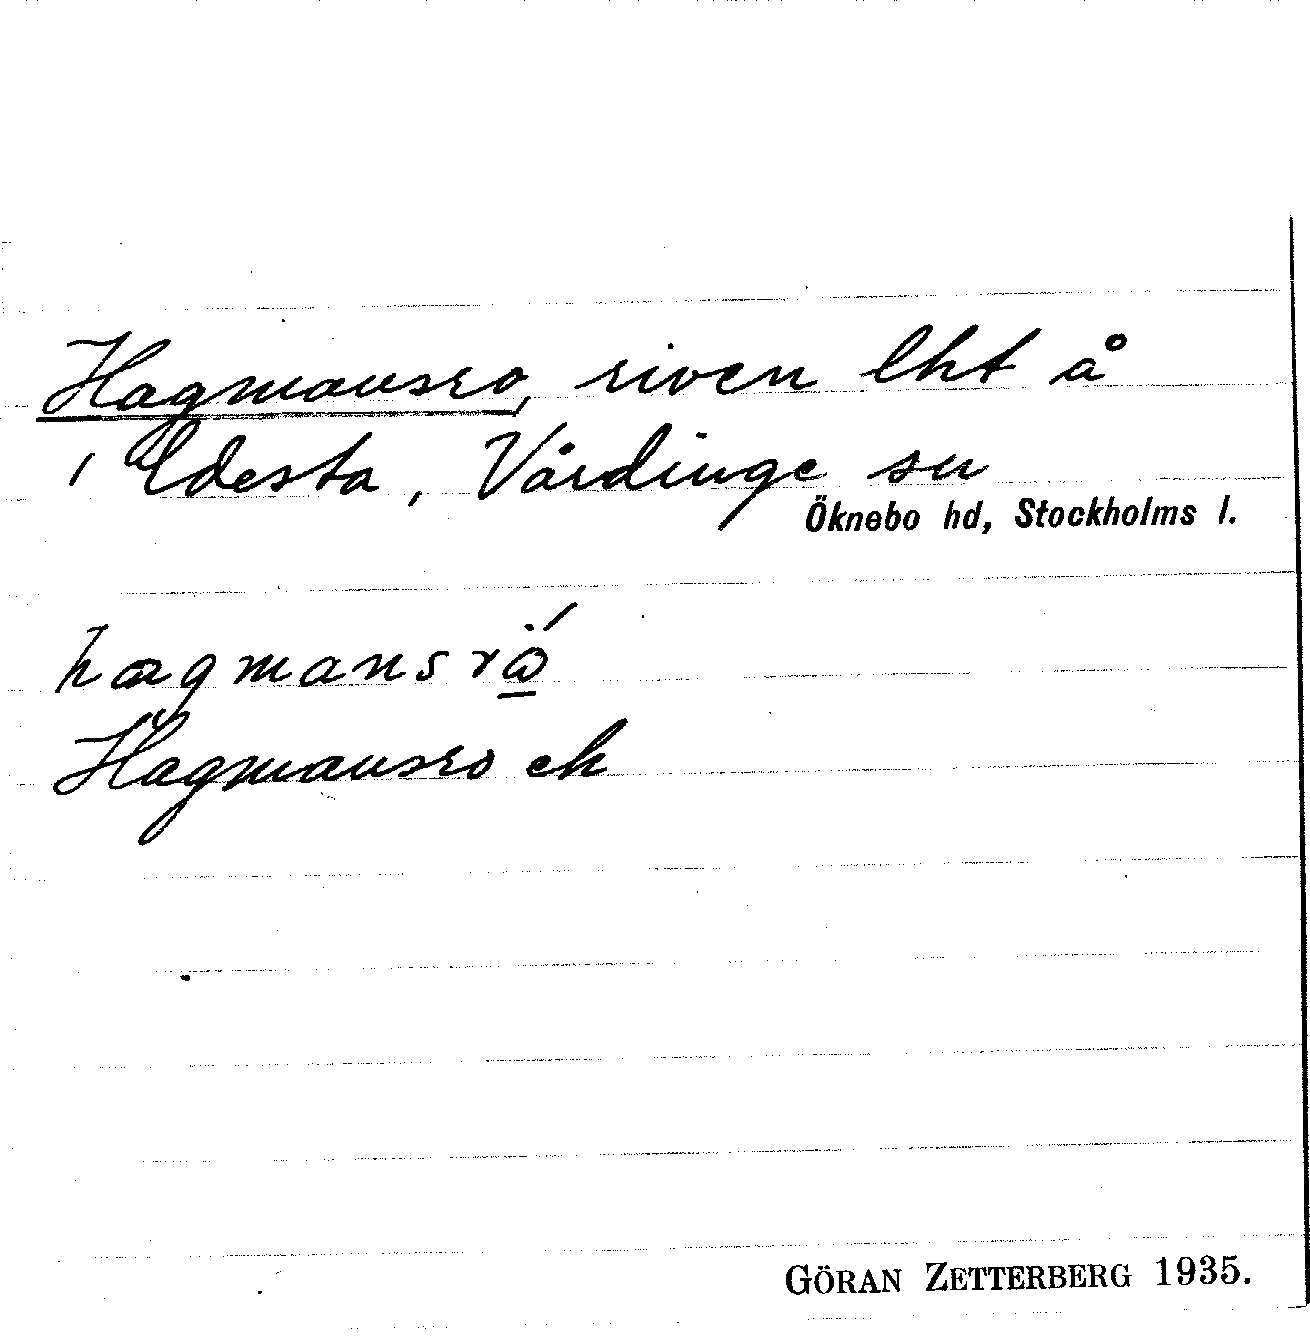 Hagmansro, riven lht å
i Edesta, Vårdinge sn
Öknebo hd, Stockholms l.
hagmansrώ̲
Hagmansro ek
GÖRAN ZETTERBERG 1935.